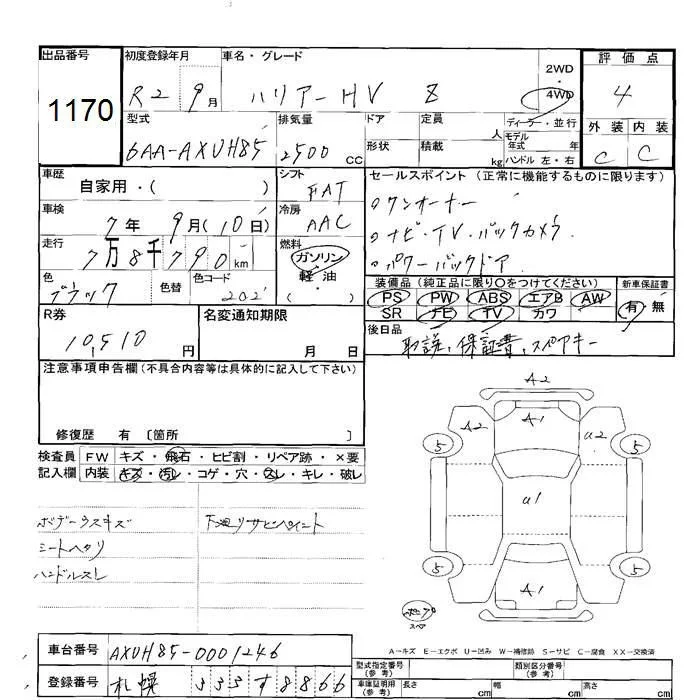 出品番号
1170
初度登録年月
R2 9月
車名・グレード
ハリアーHV Z
2WD・
4WD
評価点
4
外装 内装
C C
型式
6AA-AXUH85
排気量
2500 CC
ドア
形状
定員 人
積載 kg
ディーラー・並行
モデル年式 年
ハンドル 左・右
車歴
自家用・( )
シフト
FAT
車検
7年 9月(10日)
冷房
AAC
走行
7万8千790km
燃料
ガソリン・軽油
・( )
色
ブラック
色替
色コード
202
セールスポイント(正常に機能するものに限ります)
ワンオーナー
ナビ・TV・バックカメラ
パワーバックドア
装備品(純正品に限り〇をつけてください)
PS PW ABS エアB AW
SR ナビ TV カワ
新車保証書
有・無
R券
10,510円
名変通知期限
月 日
後日品
取説、保証書、スペアキー
注意事項申告欄(不具合内容等は具体的に記入して下さい)
修復歴 有 〔箇所 〕
検査員記入欄
FW キズ・飛石・ヒビ割・リペア跡・×要
内装 キズ・汚レ・コゲ・穴・スレ・キレ・破レ
ボデーウスキズ
シートヘタリ
ハンドルスレ
下廻りサビペイント
A2
A1
A2 U2
5 5
U1
5 5
A1
スペア
A-キズ E-エクボ U-凹み W-補修跡 S-サビ C-腐食 XX-交換済
車台番号
AXUH85-0001246
登録番号
札幌 335 す 8866
型式指定番号(参考)
類別区分番号(参考)
車庫証明用(参考)
長さ cm 幅 cm 高さ cm